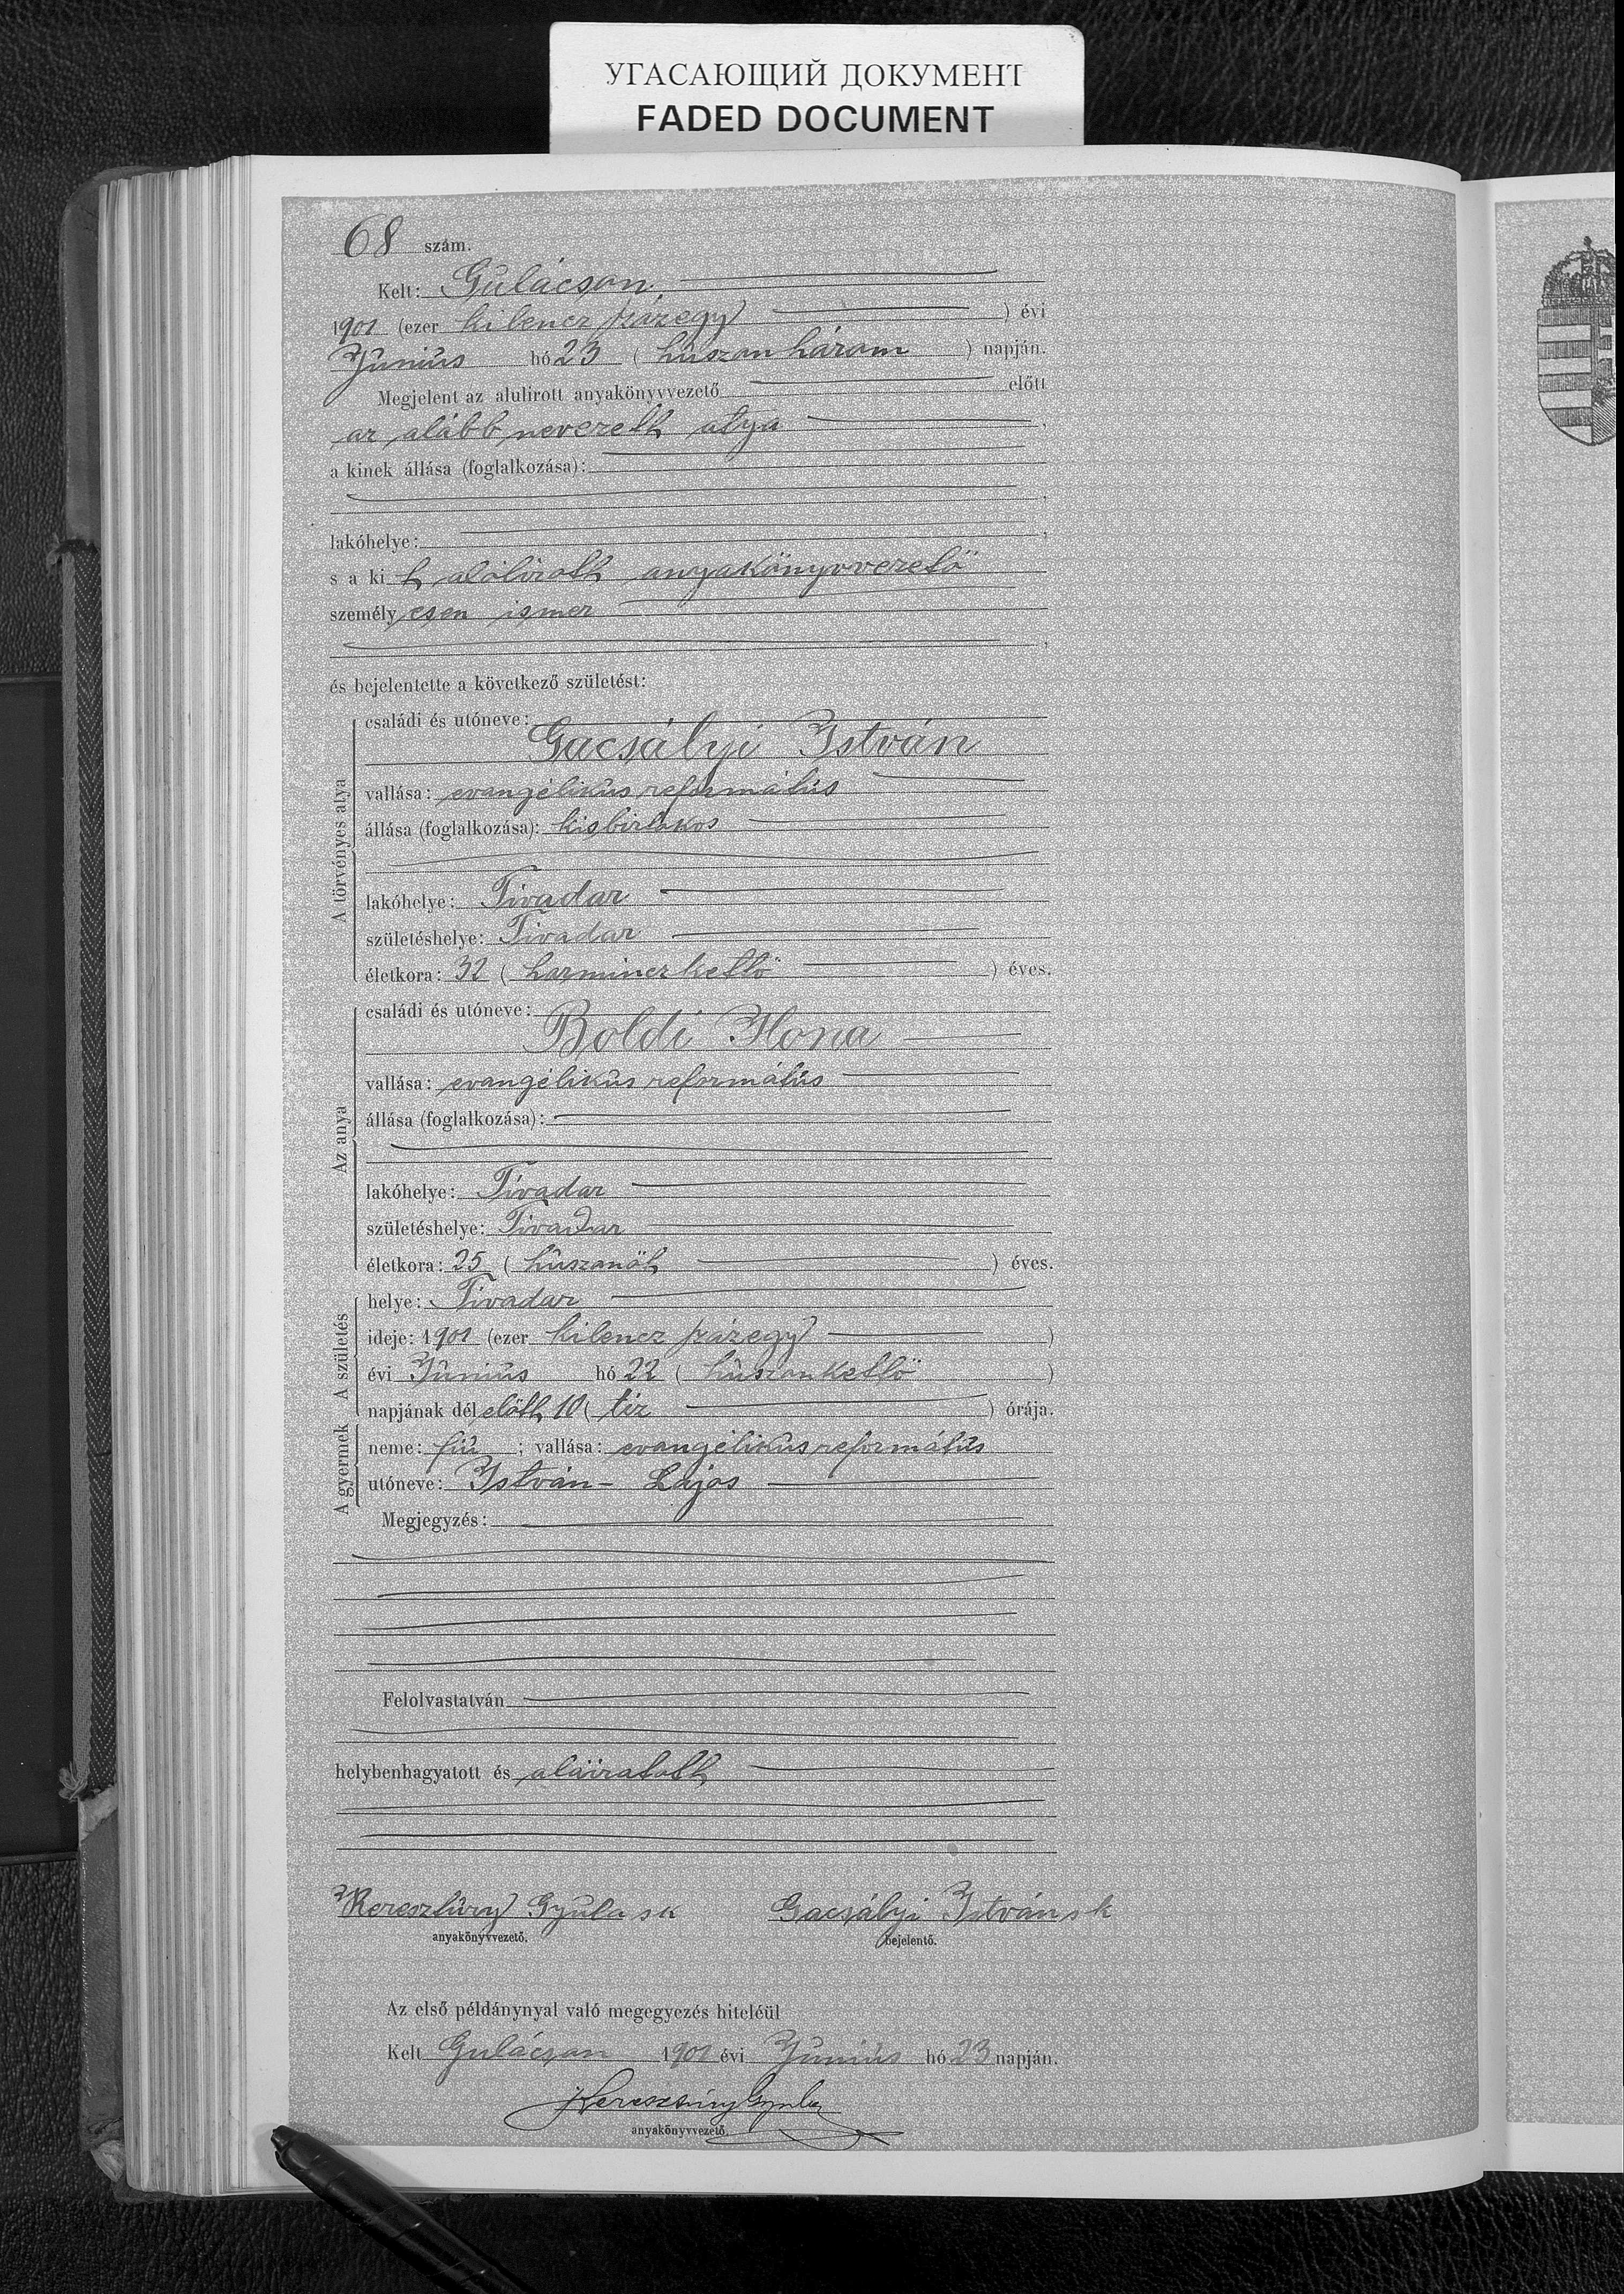 УГАСАЮЩИЙ ДОКУМЕНТ
FADED DOCUMENT
68 szám.
Kelt: Gulácson
1901 (ezer kilencz százegy) évi
Június hó 23 (húszonhárom) napján.
Megjelent az alulirott anyakönyvvezető előtt
az alább nevezett atya,
a kinek állása (foglalkozása):
,
lakóhelye: ,
s a kit alólirott anyakönyvvezető
személyesen ismer
,
és bejelentette a következő születést:
A törvényes atya
családi és utóneve:
Gacsályi István
vallása: evangélikus református
állása (foglalkozása): kisbirtokos
lakóhelye: Tivadar
születéshelye: Tivadar
életkora: 32 (harminczkettő) éves.
Az anya
családi és utóneve:
Boldi Ilona
vallása: evangélikus református
állása (foglalkozása):
lakóhelye: Tivadar
születéshelye: Tivadar
életkora: 25 (húszonöt) éves.
A születés
helye: Tivadar
ideje: 1901 (ezer kilencz százegy)
évi Június hó 22 (húszonkettő)
napjának délelőtt 10 (tiz) órája.
A gyermek
neme: fiú; vallása: evangélikus református
utóneve: István-Lajos
Megjegyzés:
Felolvastatván
helybenhagyatott és aláiratott
Keresztúry Gyula sk Gacsályi István sk
anyakönyvvezető. bejelentő.
Az első példánynyal való megegyezés hiteléül
Kelt Gulácson 1901 évi Június hó 23 napján.
Keresztúry Gyula
anyakönyvvezető.